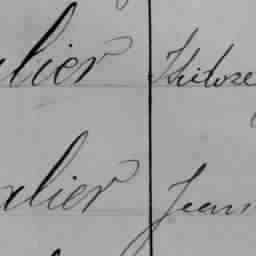 alier Isidore
alier Jean